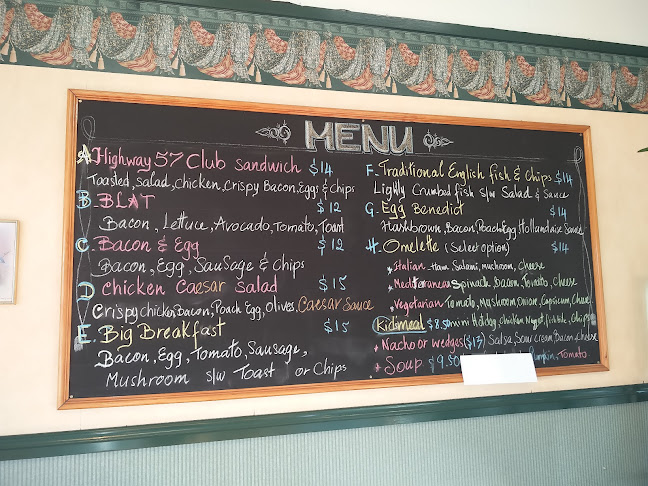 MENU
A. Highway 57 Club sandwich $14
Toasted, Salad, chicken, Crispy Bacon, Eggs & chips
B. BLAT $12
Bacon, Lettuce, Avocado, Tomato, Toast
C. Bacon & Egg $12
Bacon, Egg, Sausage & Chips
D. chicken Caesar Salad $15
Crispy chicken, Bacon, Poach Egg, Olives, Caesar Sauce
E. Big Breakfast $15
Bacon, Egg, Tomato, Sausage,
Mushroom s/w Toast or Chips
F. Traditional English fish & Chips $14
Lighly Crumbed fish s/w Salad & Sauce
G. Egg Benedict $14
Hashbrown, Bacon, Poach Egg, Hollandaise Sauce
H. Omelette (Select option) $14
* Italian Ham, Salami, mushroom, Cheese
* Mediterranean Spinach, bacon, Tomato, Cheese
* Vegetarian Tomato, Mushroom, Onion, Capsicum, Cheese
Kidimeal $8.50 mini Hotdog, chicken Nugget, Chips
* Nacho or wedges ($13) Salsa, Sour Cream, Bacon & Cheese
* Soup $9.50 Pumpkin, Tomato